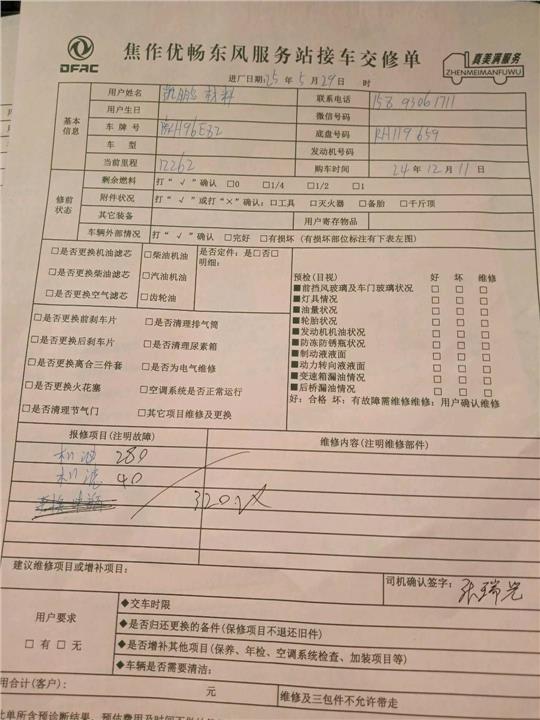 DFAC
焦作优畅东风服务站接车交修单
真美满服务
ZHENMEIMANFUWU
进厂日期:25年5月29日 时
基本信息
用户姓名 联系电话 158 9306 1711
用户生日 微信号码
车牌号 H96E32 底盘号码 RH119659
车型 发动机号码
当前里程 12262 购车时间 24年12月11日
修前状态
剩余燃料 打“√”确认 □0 □1/4 □1/2 □1
附件状况 打“√”或打“×”确认:□工具 □灭火器 □备胎 □千斤顶
其它装备 用户寄存物品
车辆外部情况 打“√”确认 □完好 □有损坏(有损坏部位标注有下表左图)
□是否更换机油滤芯 □柴油机油 是否定件:是□否□
□是否更换柴油滤芯 □汽油机油 明细:
□是否更换空气滤芯 □齿轮油
□是否更换前刹车片 □是否清理排气筒
□是否更换后刹车片 □是否清理尿素箱
□是否更换离合三件套 □是否为电气维修
□是否更换火花塞 □空调系统是否正常运行
□是否清理节气门 □其它项目维修及更换
预检(目视) 好 坏 维修
■前挡风玻璃及车门玻璃状况 □ □ □
■灯具情况 □ □ □
■油量状况 □ □ □
■轮胎状况 □ □ □
■发动机机油状况 □ □ □
■防冻防锈瓶状况 □ □ □
■制动液液面 □ □ □
■动力转向液液面 □ □ □
■变速箱漏油情况 □ □ □
■后桥漏油情况 □ □ □
好:合格 坏:有故障需维修维修:用户确认维修
报修项目(注明故障) 维修内容(注明维修部件)
机油 280
机滤 40
320
建议维修项目或增补项目:
司机确认签字:张瑞光
用户要求
□有 □无
◆交车时限
◆是否归还更换的备件(保修项目不退还旧件)
◆是否增补其他项目(保养、年检、空调系统检查、加装项目等)
◆车辆是否需要清洁:
用合计(客户): 元 维修及三包件不允许带走